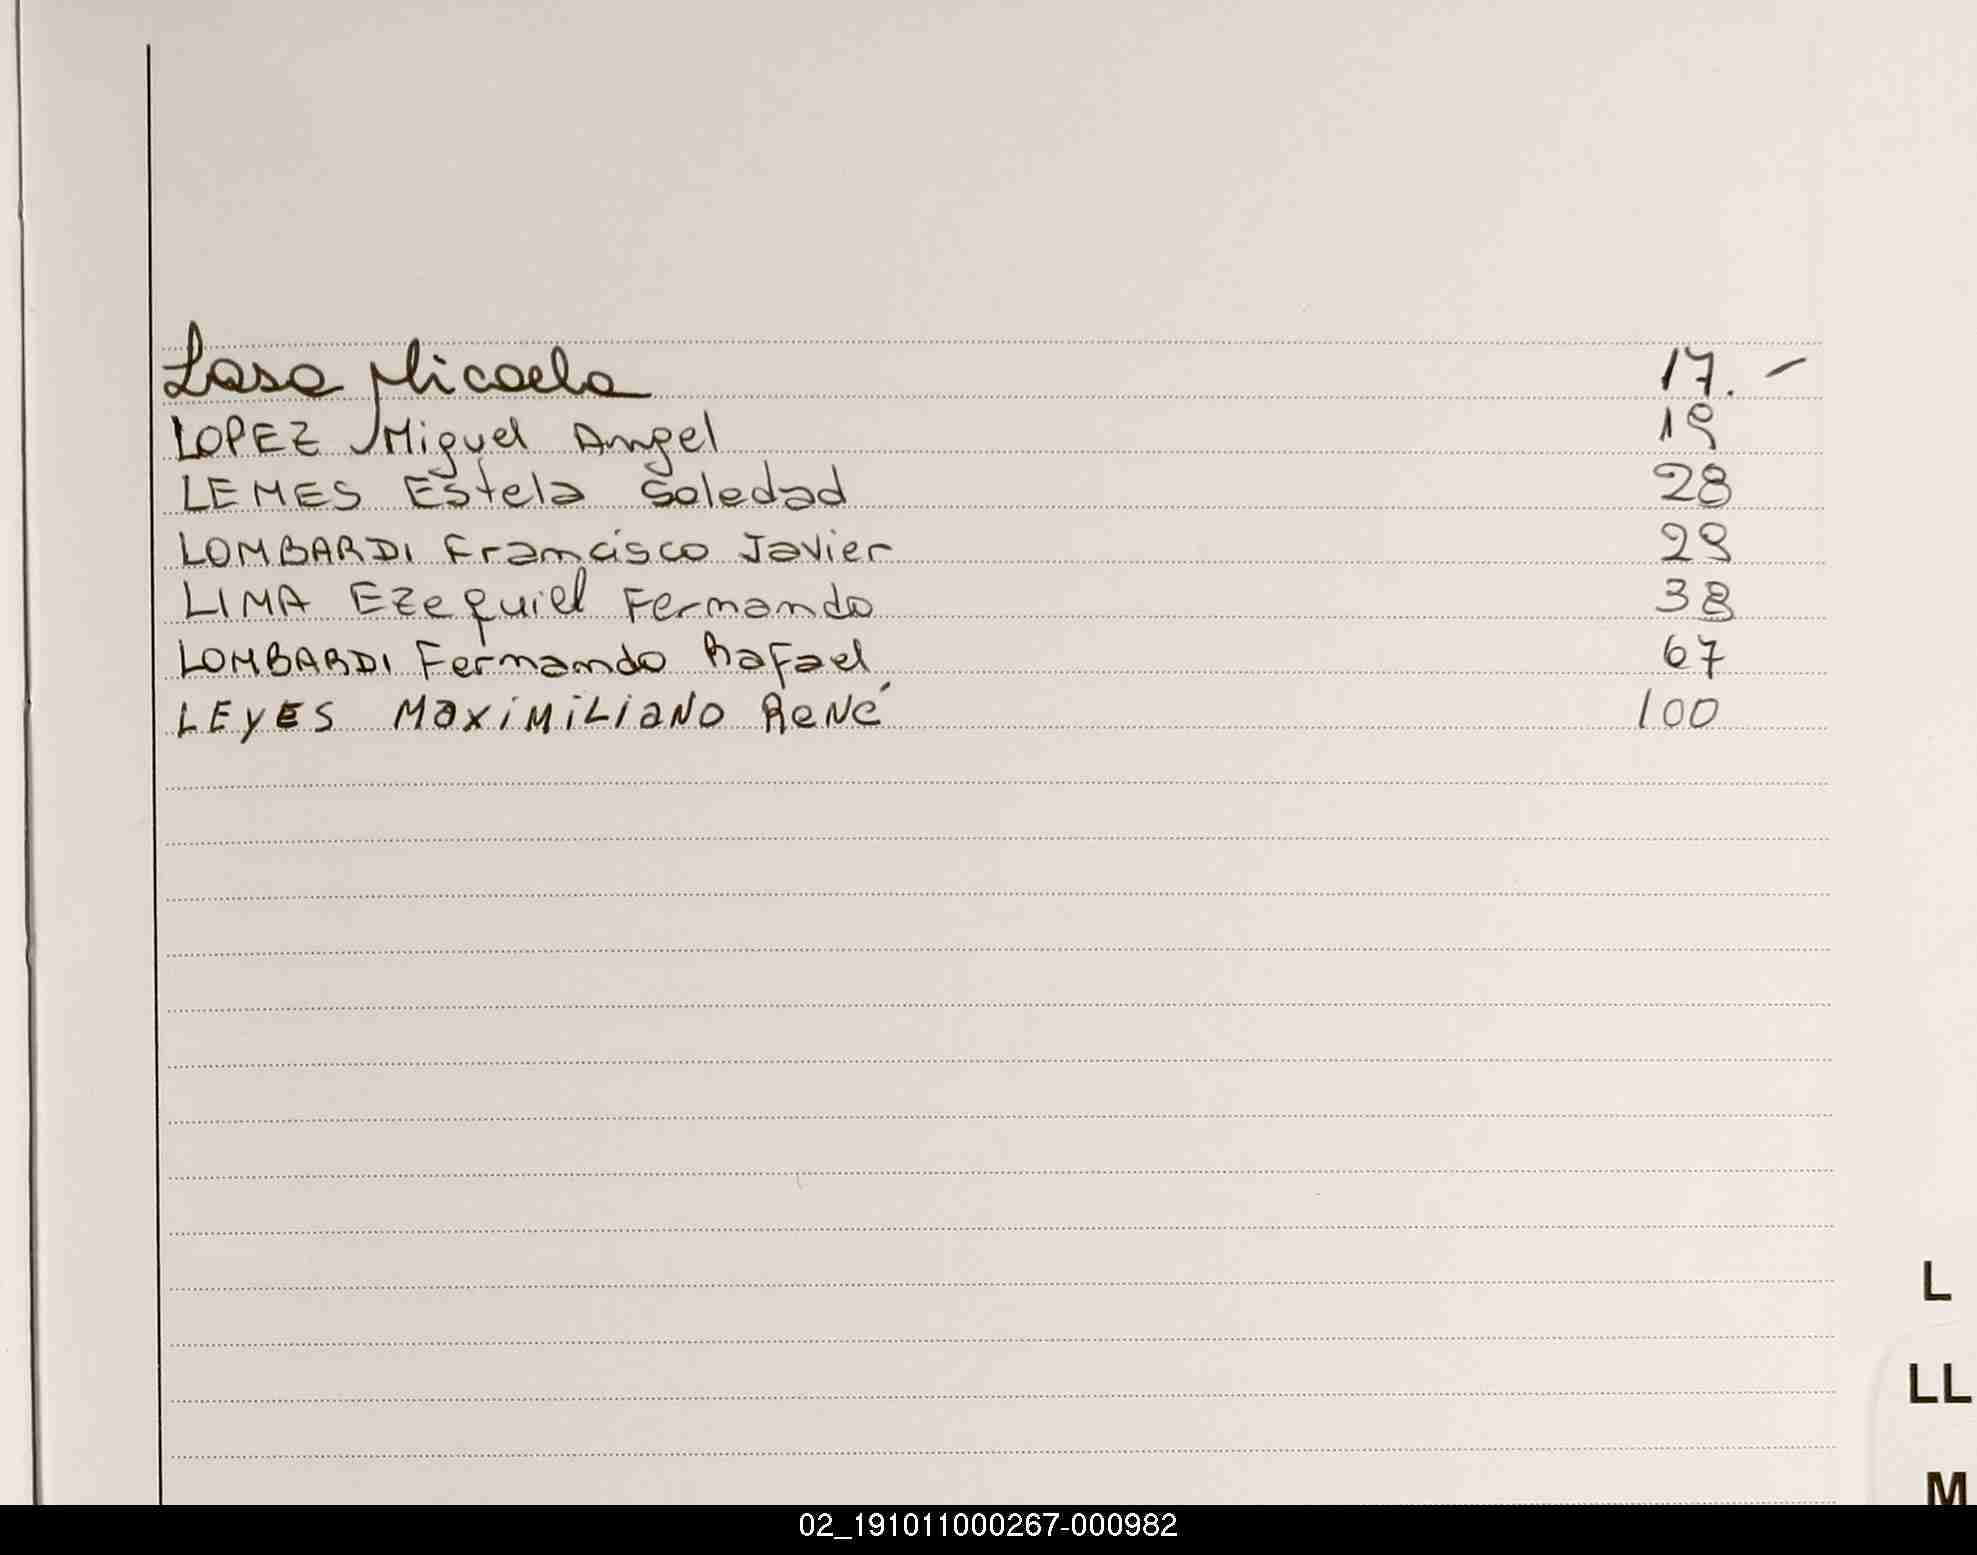 Lasa Micaela 17. -
LOPEZ Miguel Angel 19
LEMES Estela Soledad 28
LOMBARDI Francisco Javier 29
LIMA Ezequiel Fernando 38
LOMBARDI Fernando Rafael 67
LEYES MaxiMiLiaNO ReNé 100
L
LL
M
02_191011000267-000982